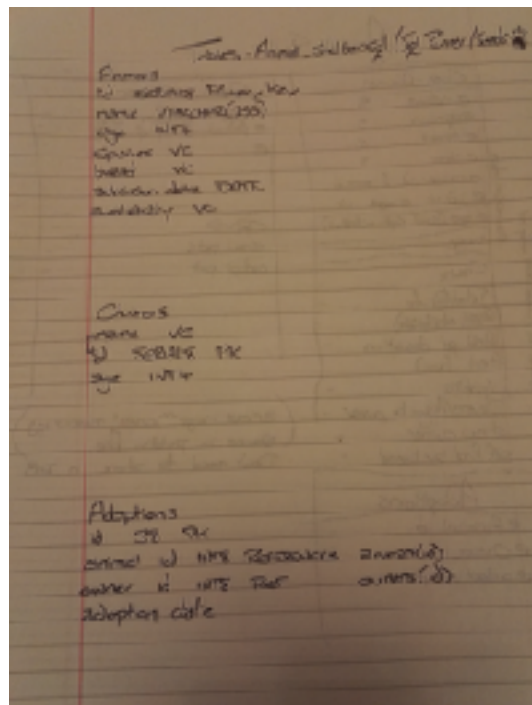 Tables - Animal_shelter.sql / Sql Runer / Seeds
Animals
id Primary Key
name VARCHAR(255)
age INT
species VC
breed VC
admission date DATE
availability VC
Owners
name VC
id SERIAL PK
age INT
Adoptions
id PK
animal id References animals(id)
owner id Ref owners(id)
adoption date